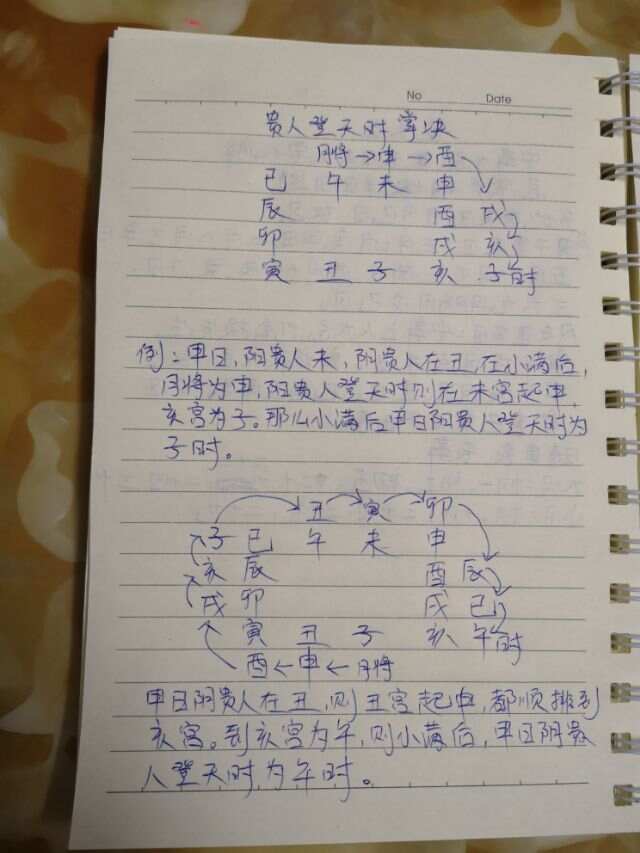 No Date
贵人登天时掌决
月将→申→酉
巳 午 未 申
辰 酉 戌
卯 戌 亥
寅 丑 子 亥 子时
例：甲日，阳贵人未，阴贵人在丑，在小满后，
月将为申，阳贵人登天时则在未宫起申，
亥宫为子。那么小满后甲日阳贵人登天时为
子时。
丑 寅 卯
子 巳 午 未 申
亥 辰 酉 辰
戌 卯 戌 巳
寅 丑 子 亥 午时
酉←申←月将
甲日阴贵人在丑，则丑宫起申，都顺排到
亥宫。到亥宫为午，则小满后，甲日阴贵
人登天时为午时。